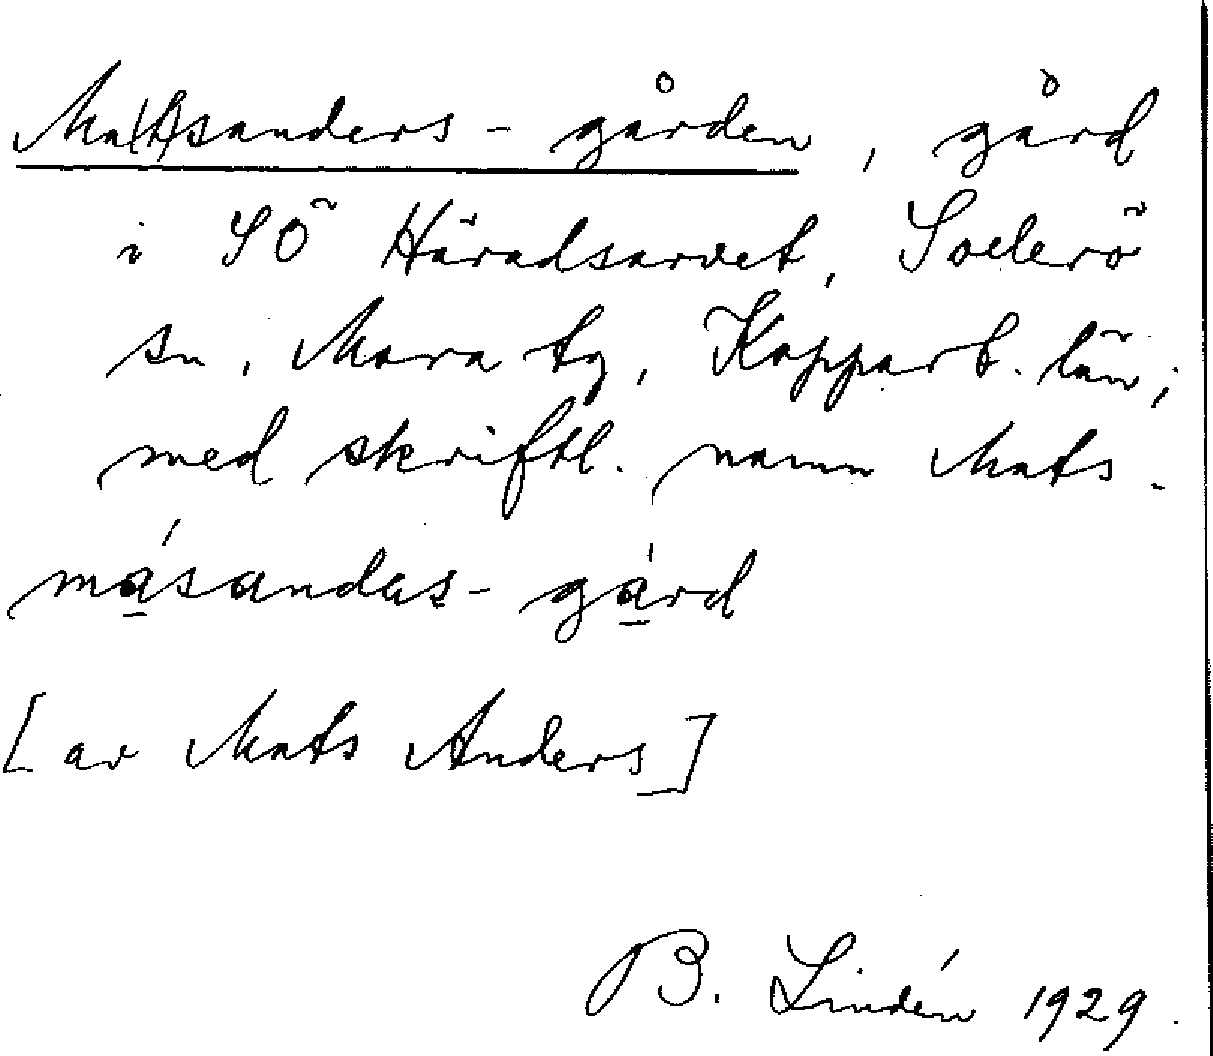 Ma(t)sanders-gården, gård
i SÖ Häradsarvet, Sollerö
sn, Mora tg, Kopparb. län;
med skriftl. namn Mats.
másandas-gárd
[av Mats Anders]
B. Lindén 1929.